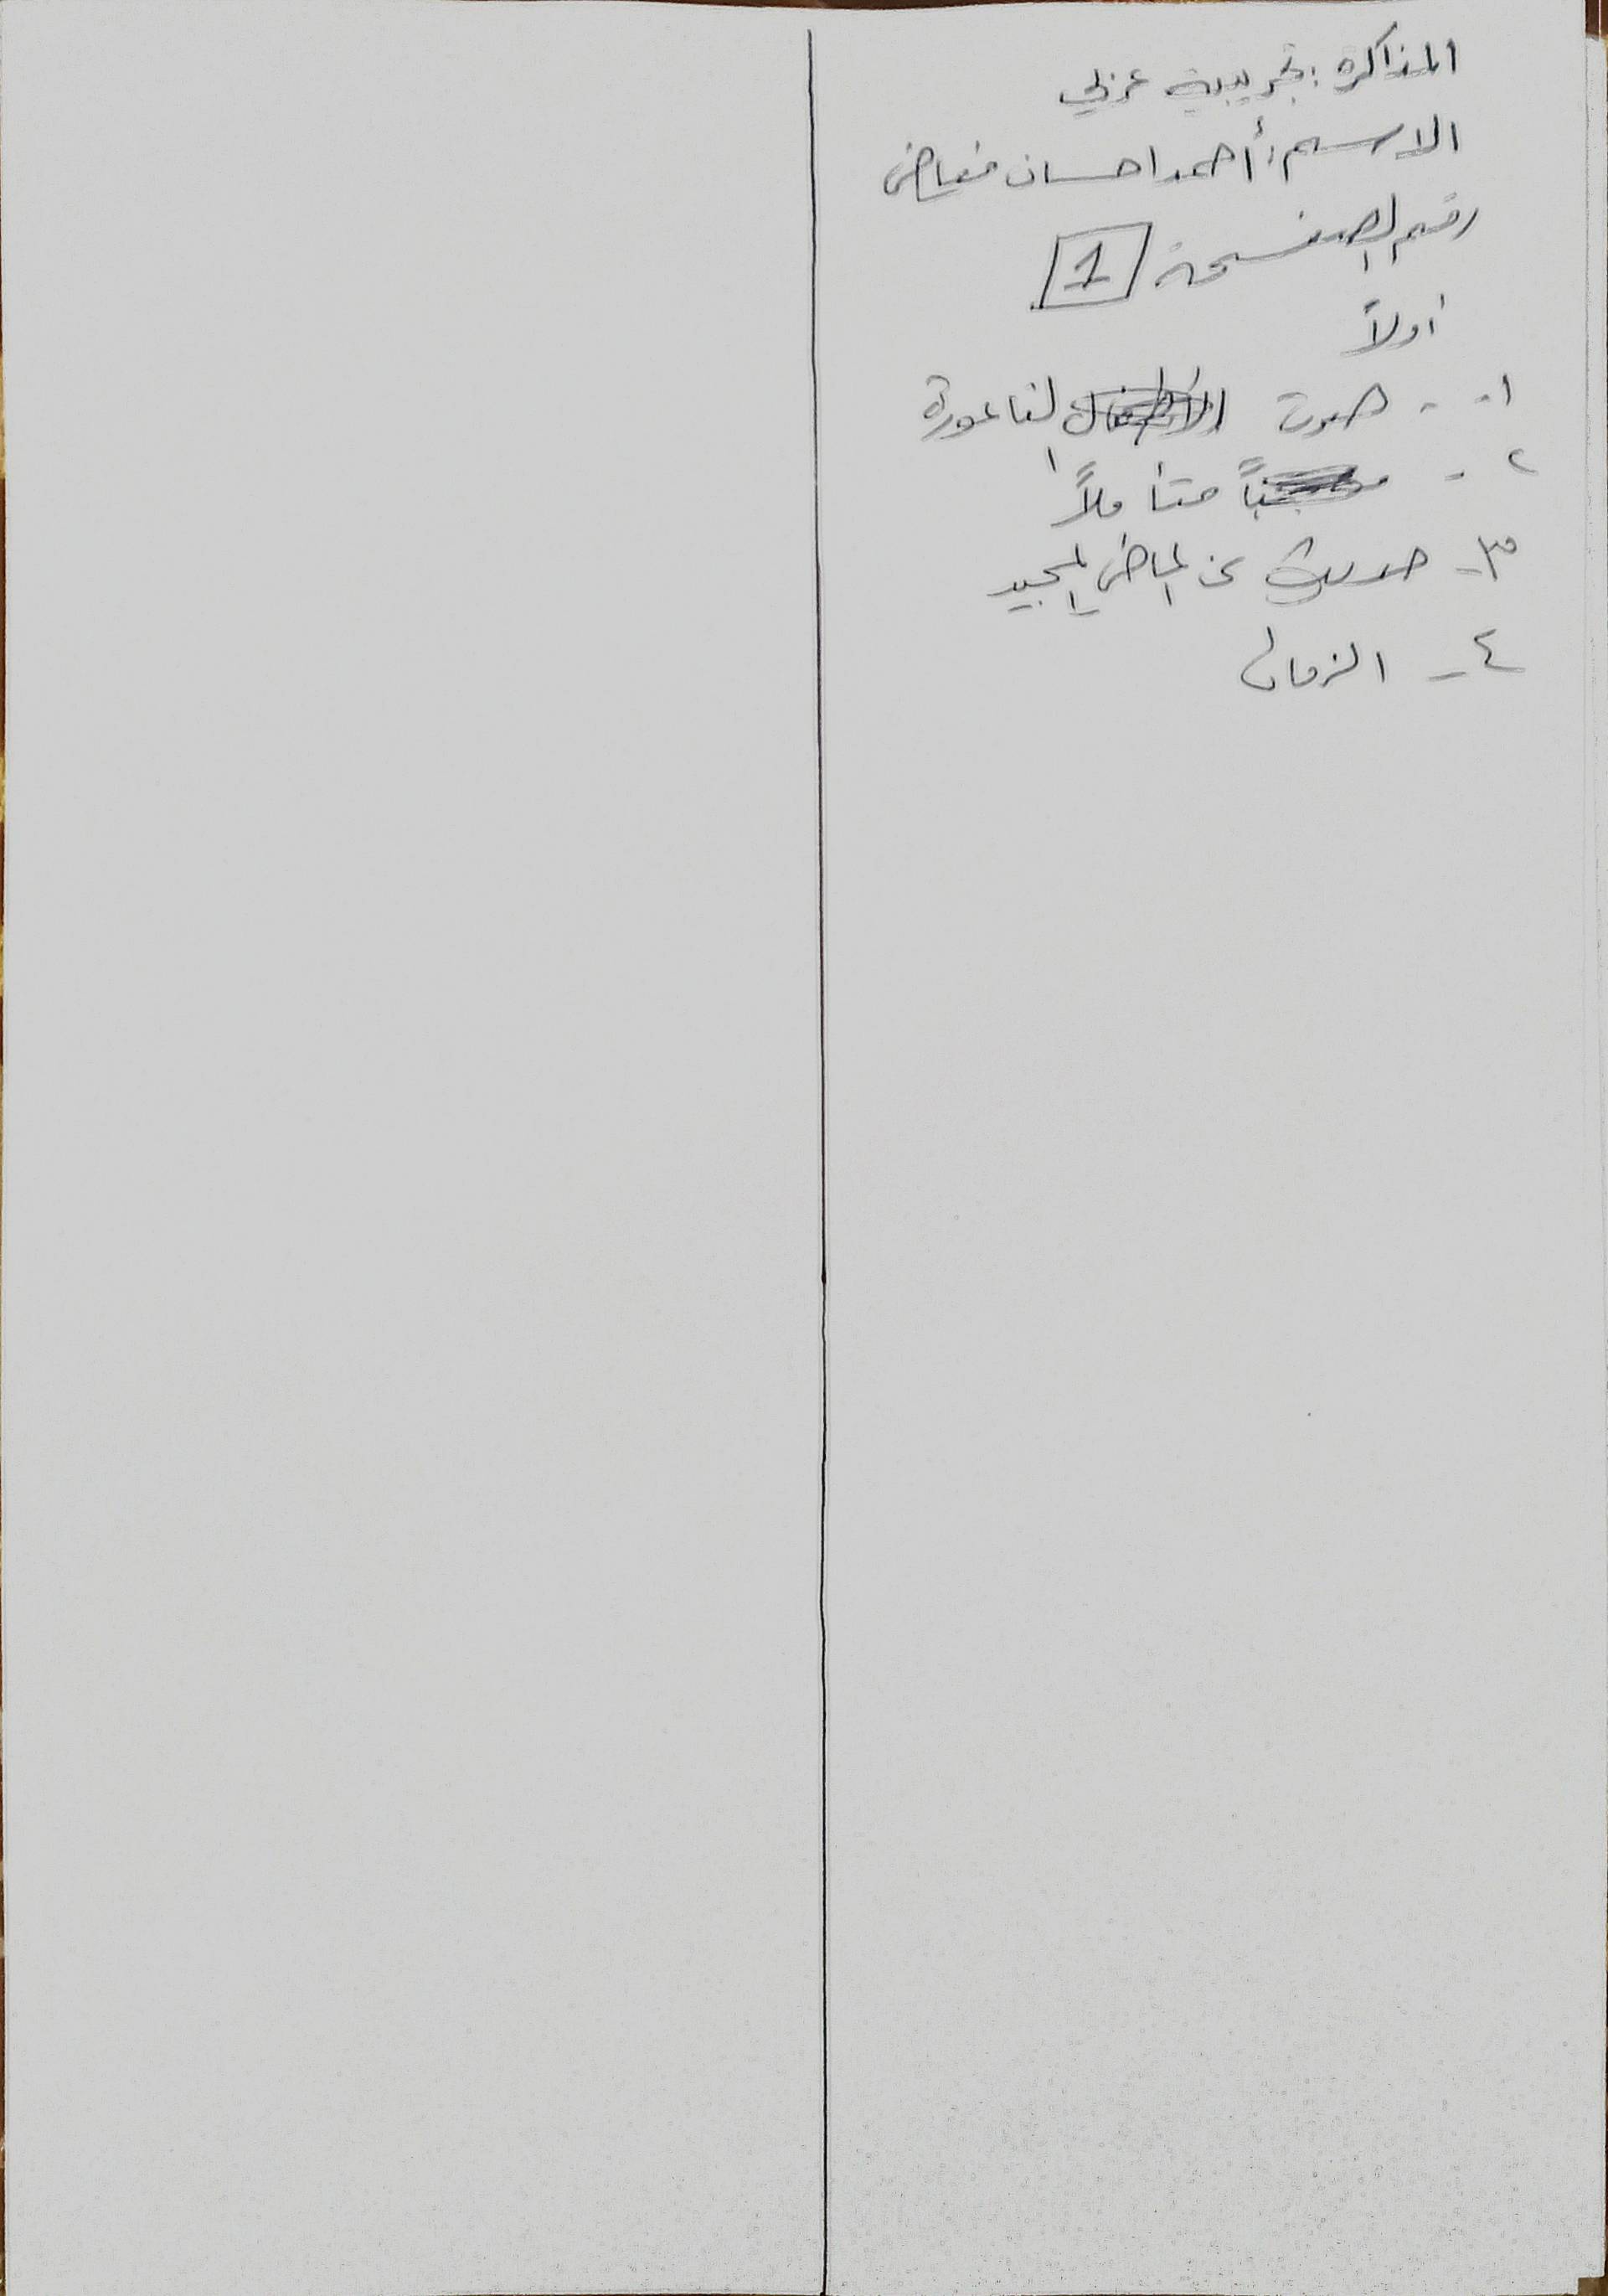 المذاكرة: تجريبية عربي
الاسم: أحمد احسان
رقم الصفحة 1
أولاً
١- صوت الناعورة
٢- متأملاً
٣- حديث عن الماضي المجيد
٤- الزمان